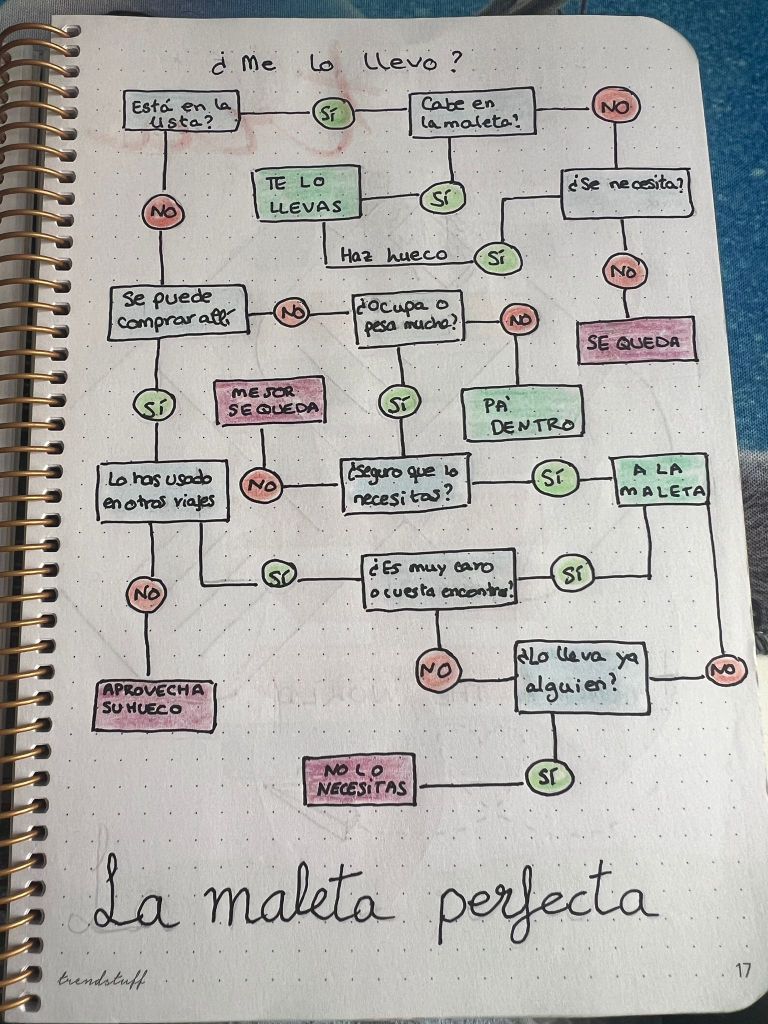 ¿Me lo llevo?
Está en la
lista?
SÍ
Cabe en
la maleta?
NO
TE LO
LLEVAS
SÍ
¿Se necesita?
NO
Haz hueco
SÍ
NO
Se puede
comprar allí
NO
¿Ocupa o
pesa mucho?
NO
SE QUEDA
SÍ
MEJOR
SE QUEDA
SÍ
PA'
DENTRO
Lo has usado
en otros viajes
NO
¿Seguro que lo
necesitas?
SÍ
A LA
MALETA
NO
SÍ
¿Es muy caro
o cuesta encontrar?
SÍ
NO
¿Lo lleva ya
alguien?
NO
APROVECHA
SU HUECO
NO LO
NECESITAS
SÍ
La maleta perfecta
trendstuff
17